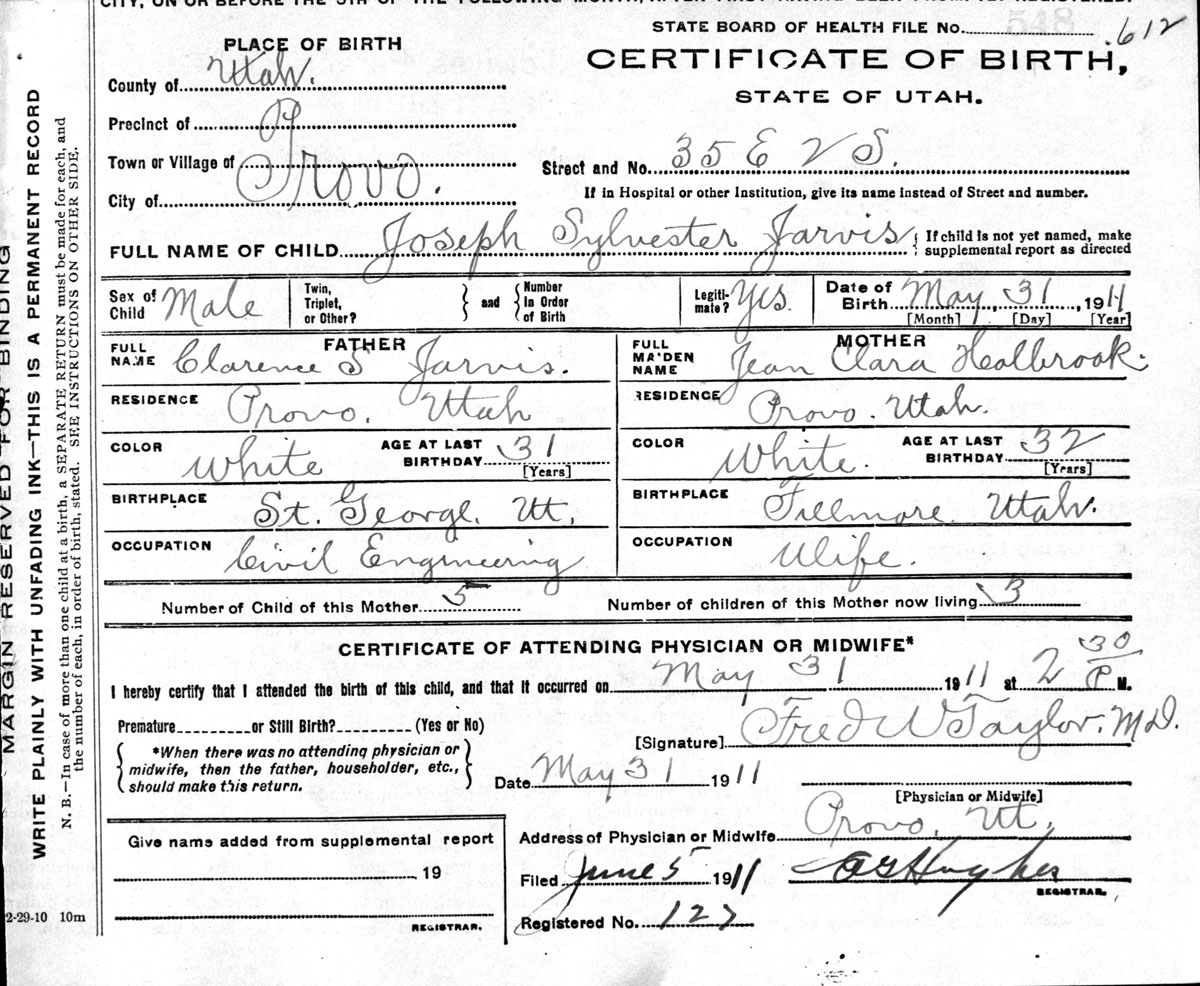 CITY, ON OR BEFORE THE 5TH OF THE FOLLOWING MONTH, AFTER FIRST HAVING BEEN PROMPTLY REGISTERED.
STATE BOARD OF HEALTH FILE No. 612
548
PLACE OF BIRTH
CERTIFICATE OF BIRTH,
STATE OF UTAH.
County of Utah.
Precinct of
Town or Village of
City of Provo.
Street and No. 35 E 2 S.
If in Hospital or other Institution, give its name instead of Street and number.
FULL NAME OF CHILD Joseph Sylvester Jarvis { If child is not yet named, make supplemental report as directed
Sex of Child Male
Twin, Triplet, or Other? } and { Number in Order of Birth
Legitimate? Yes.
Date of Birth May, 31, 1911
[Month] [Day] [Year]
FATHER
FULL NAME Clarence S Jarvis.
MOTHER
FULL MAIDEN NAME Jean Clara Holbrook.
RESIDENCE Provo. Utah
RESIDENCE Provo. Utah.
COLOR White AGE AT LAST BIRTHDAY 31 [Years]
COLOR White. AGE AT LAST BIRTHDAY 32 [Years]
BIRTHPLACE St. George. Ut.
BIRTHPLACE Fillmore Utah.
OCCUPATION Civil Engineering
OCCUPATION Wife.
Number of Child of this Mother 5
Number of children of this Mother now living 3
CERTIFICATE OF ATTENDING PHYSICIAN OR MIDWIFE*
I hereby certify that I attended the birth of this child, and that it occurred on May 31 1911 at 2 30 P M.
Premature or Still Birth? (Yes or No)
[Signature] Fred W Taylor. M.D.
{ *When there was no attending physician or midwife, then the father, householder, etc., should make this return. }
Date May 31 1911
[Physician or Midwife]
Address of Physician or Midwife Provo, Ut,
Give name added from supplemental report
19
REGISTRAR.
Filed June 5 1911 Hughes
REGISTRAR.
Registered No. 127
2-29-10 10m
MARGIN RESERVED FOR BINDING
WRITE PLAINLY WITH UNFADING INK—THIS IS A PERMANENT RECORD
N. B.—In case of more than one child at a birth, a SEPARATE RETURN must be made for each, and
the number of each, in order of birth, stated. SEE INSTRUCTIONS ON OTHER SIDE.